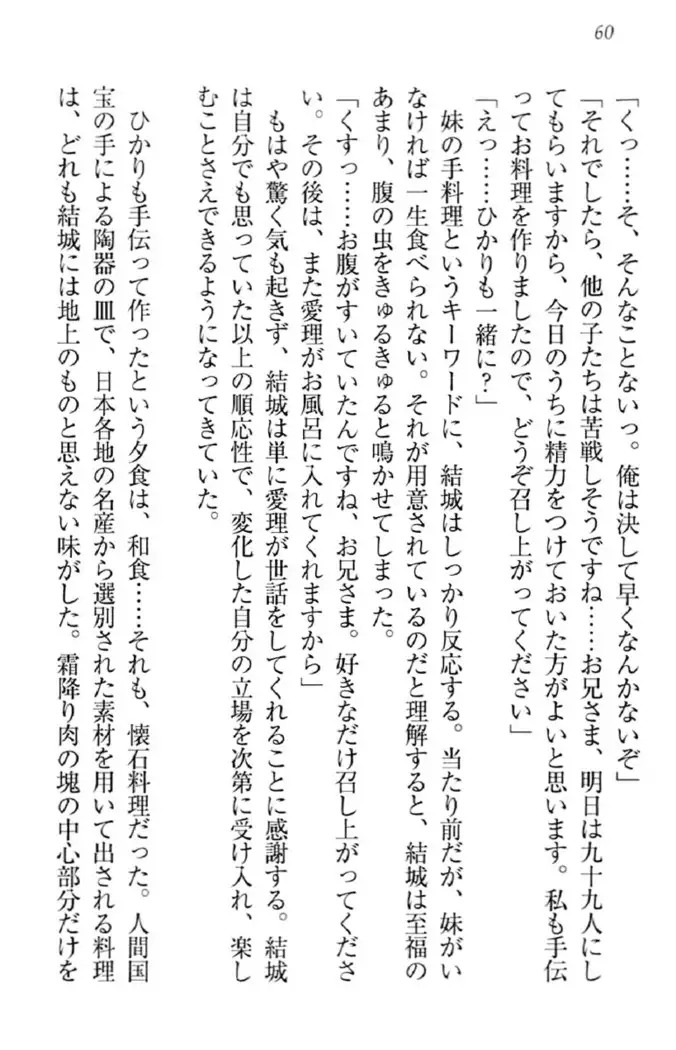 60
「くっ……そ、そんなことないっ。俺は決して早くなんかないぞ」
「それでしたら、他の子たちは苦戦しそうですね……お兄さま、明日は九十九人にし
てもらいますから、今日のうちに精力をつけておいた方がよいと思います。私も手伝
ってお料理を作りましたので、どうぞ召し上がってください」
「えっ……ひかりも一緒に？」
妹の手料理というキーワードに、結城はしっかり反応する。当たり前だが、妹がい
なければ一生食べられない。それが用意されているのだと理解すると、結城は至福の
あまり、腹の虫をきゅるきゅると鳴かせてしまった。
「くすっ……お腹がすいていたんですね、お兄さま。好きなだけ召し上がってくださ
い。その後は、また愛理がお風呂に入れてくれますから」
もはや驚く気も起きず、結城は単に愛理が世話をしてくれることに感謝する。結城
は自分でも思っていた以上の順応性で、変化した自分の立場を次第に受け入れ、楽し
むことさえできるようになってきていた。
ひかりも手伝って作ったという夕食は、和食……それも、懐石料理だった。人間国
宝の手による陶器の皿で、日本各地の名産から選別された素材を用いて出される料理
は、どれも結城には地上のものと思えない味がした。霜降り肉の塊の中心部分だけを